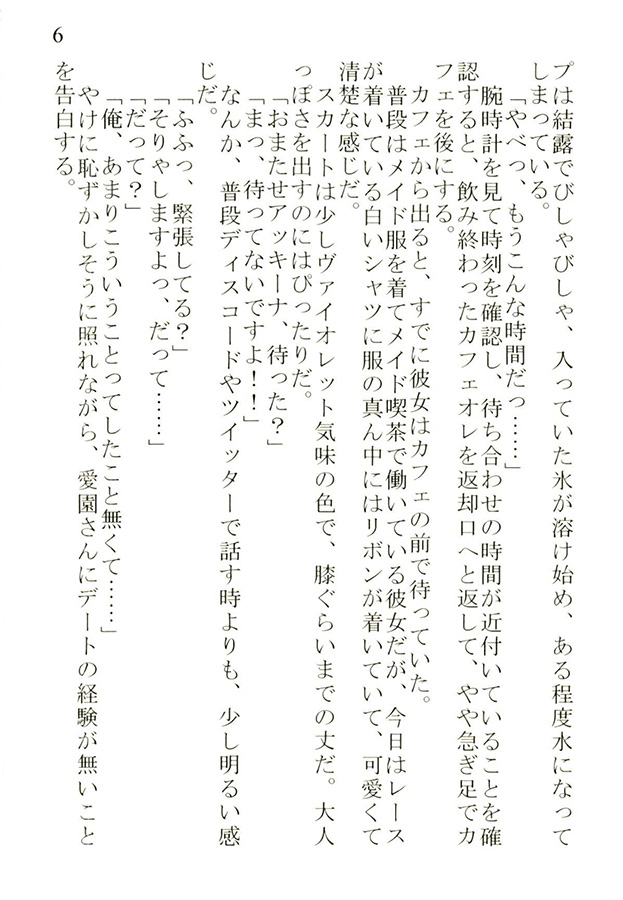 6
プは結露でびしゃびしゃ、入っていた氷が溶け始め、ある程度水になって
しまっている。
「やべっ、もうこんな時間だっ……」
腕時計を見て時刻を確認し、待ち合わせの時間が近付いていることを確
認すると、飲み終わったカフェオレを返却口へと返して、やや急ぎ足でカ
フェを後にする。
カフェから出ると、すでに彼女はカフェの前で待っていた。
普段はメイド服を着てメイド喫茶で働いている彼女だが、今日はレース
が着いている白いシャツに服の真ん中にはリボンが着いていて、可愛くて
清楚な感じだ。
スカートは少しヴァイオレット気味の色で、膝ぐらいまでの丈だ。大人
っぽさを出すのにはぴったりだ。
「おまたせアッキーナ、待った？」
「まっ、待ってないですよ！！」
なんか、普段ディスコードやツイッターで話す時よりも、少し明るい感
じだ。
「ふふっ、緊張してる？」
「そりゃしますよっ、だって……」
「だって？」
「俺、あまりこういうことってしたこと無くて……」
やけに恥ずかしそうに照れながら、愛園さんにデートの経験が無いこと
を告白する。